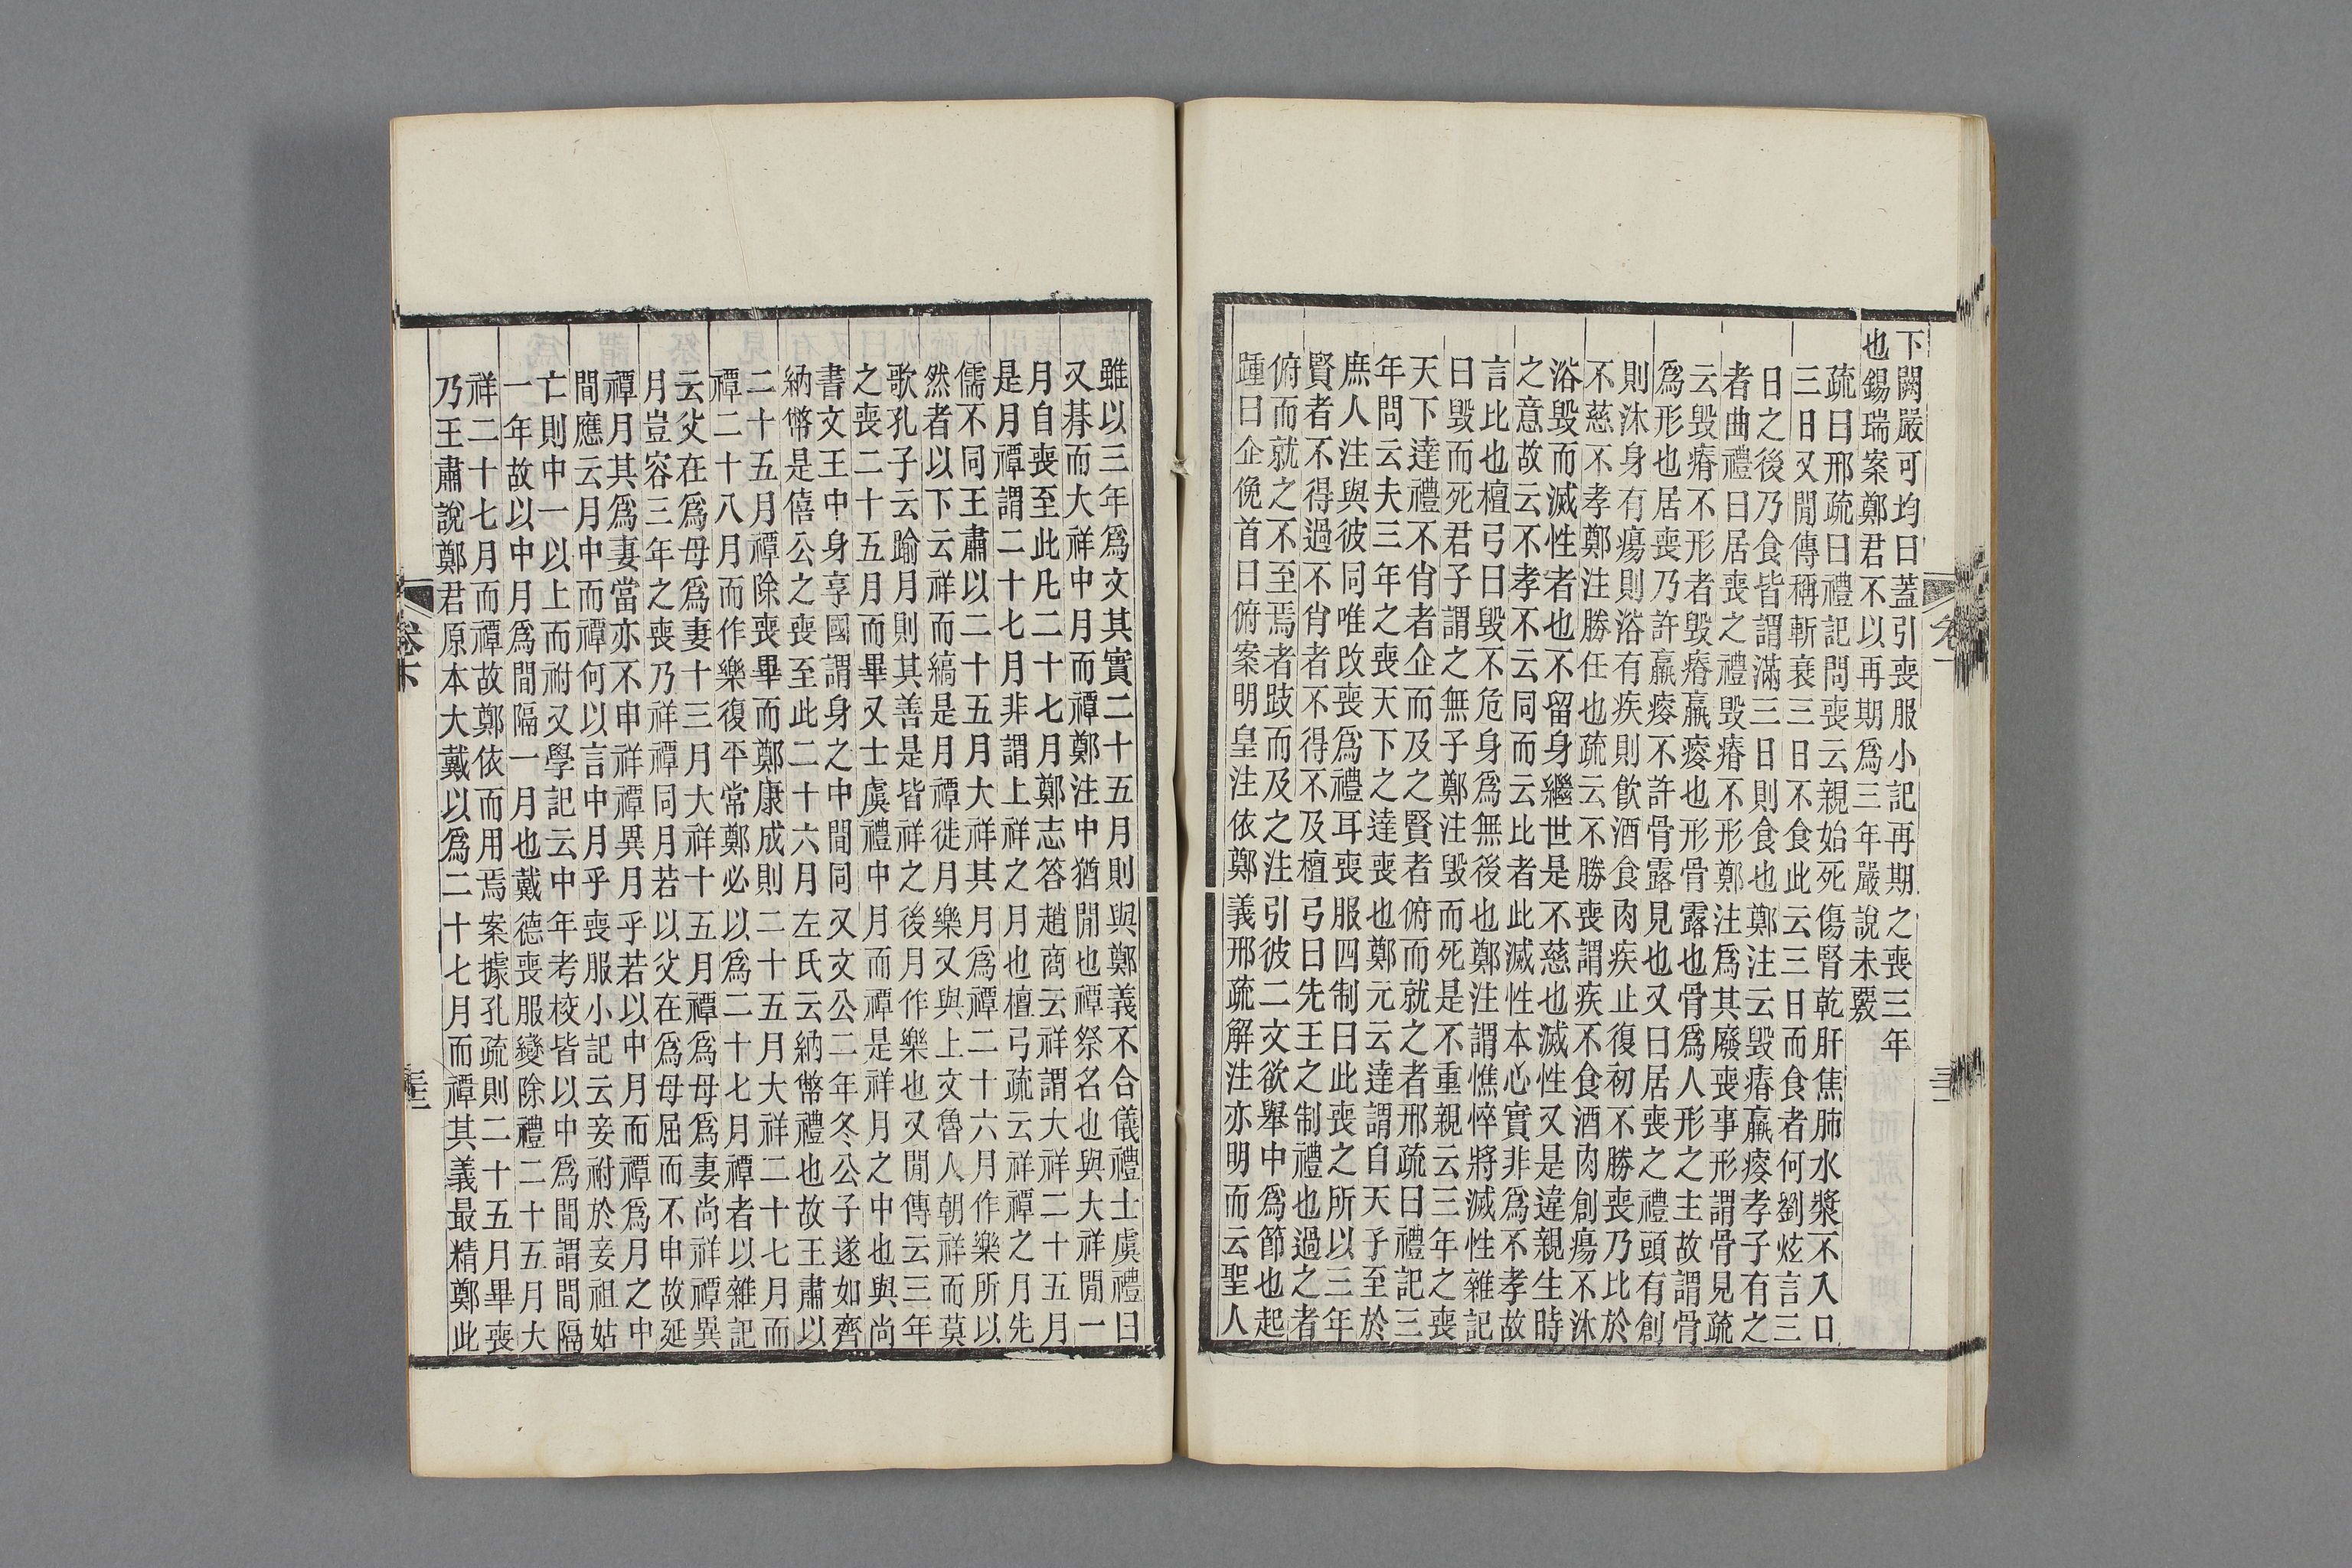 下闕嚴可均曰蓋引喪服小記再期之喪三年
也錫瑞案鄭君不以再期爲三年嚴說未覈
疏曰邢疏曰禮記問喪云親始死傷腎乾肝焦肺水漿不入口
三日又閒傳稱斬衰三日不食此云三日而食者何劉炫言三
日之後乃食皆謂滿三日則食也鄭注云毀瘠羸瘦孝子有之
者曲禮曰居喪之禮毀瘠不形鄭注爲其廢喪事形謂骨見疏
云毀瘠不形者毀瘠羸瘦也形骨露也骨爲人形之主故謂骨
爲形也居喪乃許羸瘦不許骨露見也又曰居喪之禮頭有創
則沐身有瘍則浴有疾則飮酒食肉疾止復初不勝喪乃比於
不慈不孝鄭注勝任也疏云不勝喪謂疾不食酒肉創瘍不沐
浴毀而滅性者也不留身繼世是不慈也滅性又是違親生時
之意故云不孝不云同而云比者此滅性本心實非爲不孝故
言比也檀弓曰毀不危身爲無後也鄭注謂憔悴將滅性雜記
曰毀而死君子謂之無子鄭注毀而死是不重親云三年之喪
天下達禮不肖者企而及之賢者俯而就之者邢疏曰禮記三
年問云夫三年之喪天下之達喪也鄭元云達謂自天子至於
庶人注與彼同唯改喪爲禮耳喪服四制曰此喪之所以三年
賢者不得過不肖者不得不及檀弓曰先王之制禮也過之者
俯而就之不至焉者跂而及之注引彼二文欲舉中爲節也起
踵曰企俛首曰俯案明皇注依鄭義邢疏解注亦明而云聖人
雖以三年爲文其實二十五月則與鄭義不合儀禮士虞禮曰
又朞而大祥中月而禫鄭注中猶閒也禫祭名也與大祥閒一
月自喪至此凡二十七月鄭志答趙商云祥謂大祥二十五月
是月禫謂二十七月非謂上祥之月也檀弓疏云祥禫之月先
儒不同王肅以二十五月大祥其月爲禫二十六月作樂所以
然者以下云祥而縞是月禫徙月樂又與上文魯人朝祥而莫
歌孔子云踰月則其善是皆祥之後月作樂也又閒傳云三年
之喪二十五月而畢又士虞禮中月而禫是祥月之中也與尚
書文王中身享國謂身之中間同又文公二年冬公子遂如齊
納幣是僖公之喪至此二十六月左氏云納幣禮也故王肅以
二十五月禫除喪畢而鄭康成則二十五月大祥二十七月而
禫二十八月而作樂復平常鄭必以爲二十七月禫者以雜記
云父在爲母爲妻十三月大祥十五月禫爲母爲妻尚祥禫異
月豈容三年之喪乃祥禫同月若以父在爲母屈而不申故延
禫月其爲妻當亦不申祥禫異月乎若以中月而禫爲月之中
間應云月中而禫何以言中月乎喪服小記云妾祔於妾祖姑
亡則中一以上而祔又學記云中年考校皆以中爲間謂間隔
一年故以中月爲間隔一月也戴德喪服變除禮二十五月大
祥二十七月而禫故鄭依而用焉案據孔疏則二十五月畢喪
乃王肅說鄭君原本大戴以爲二十七月而禫其義最精鄭此
卷下